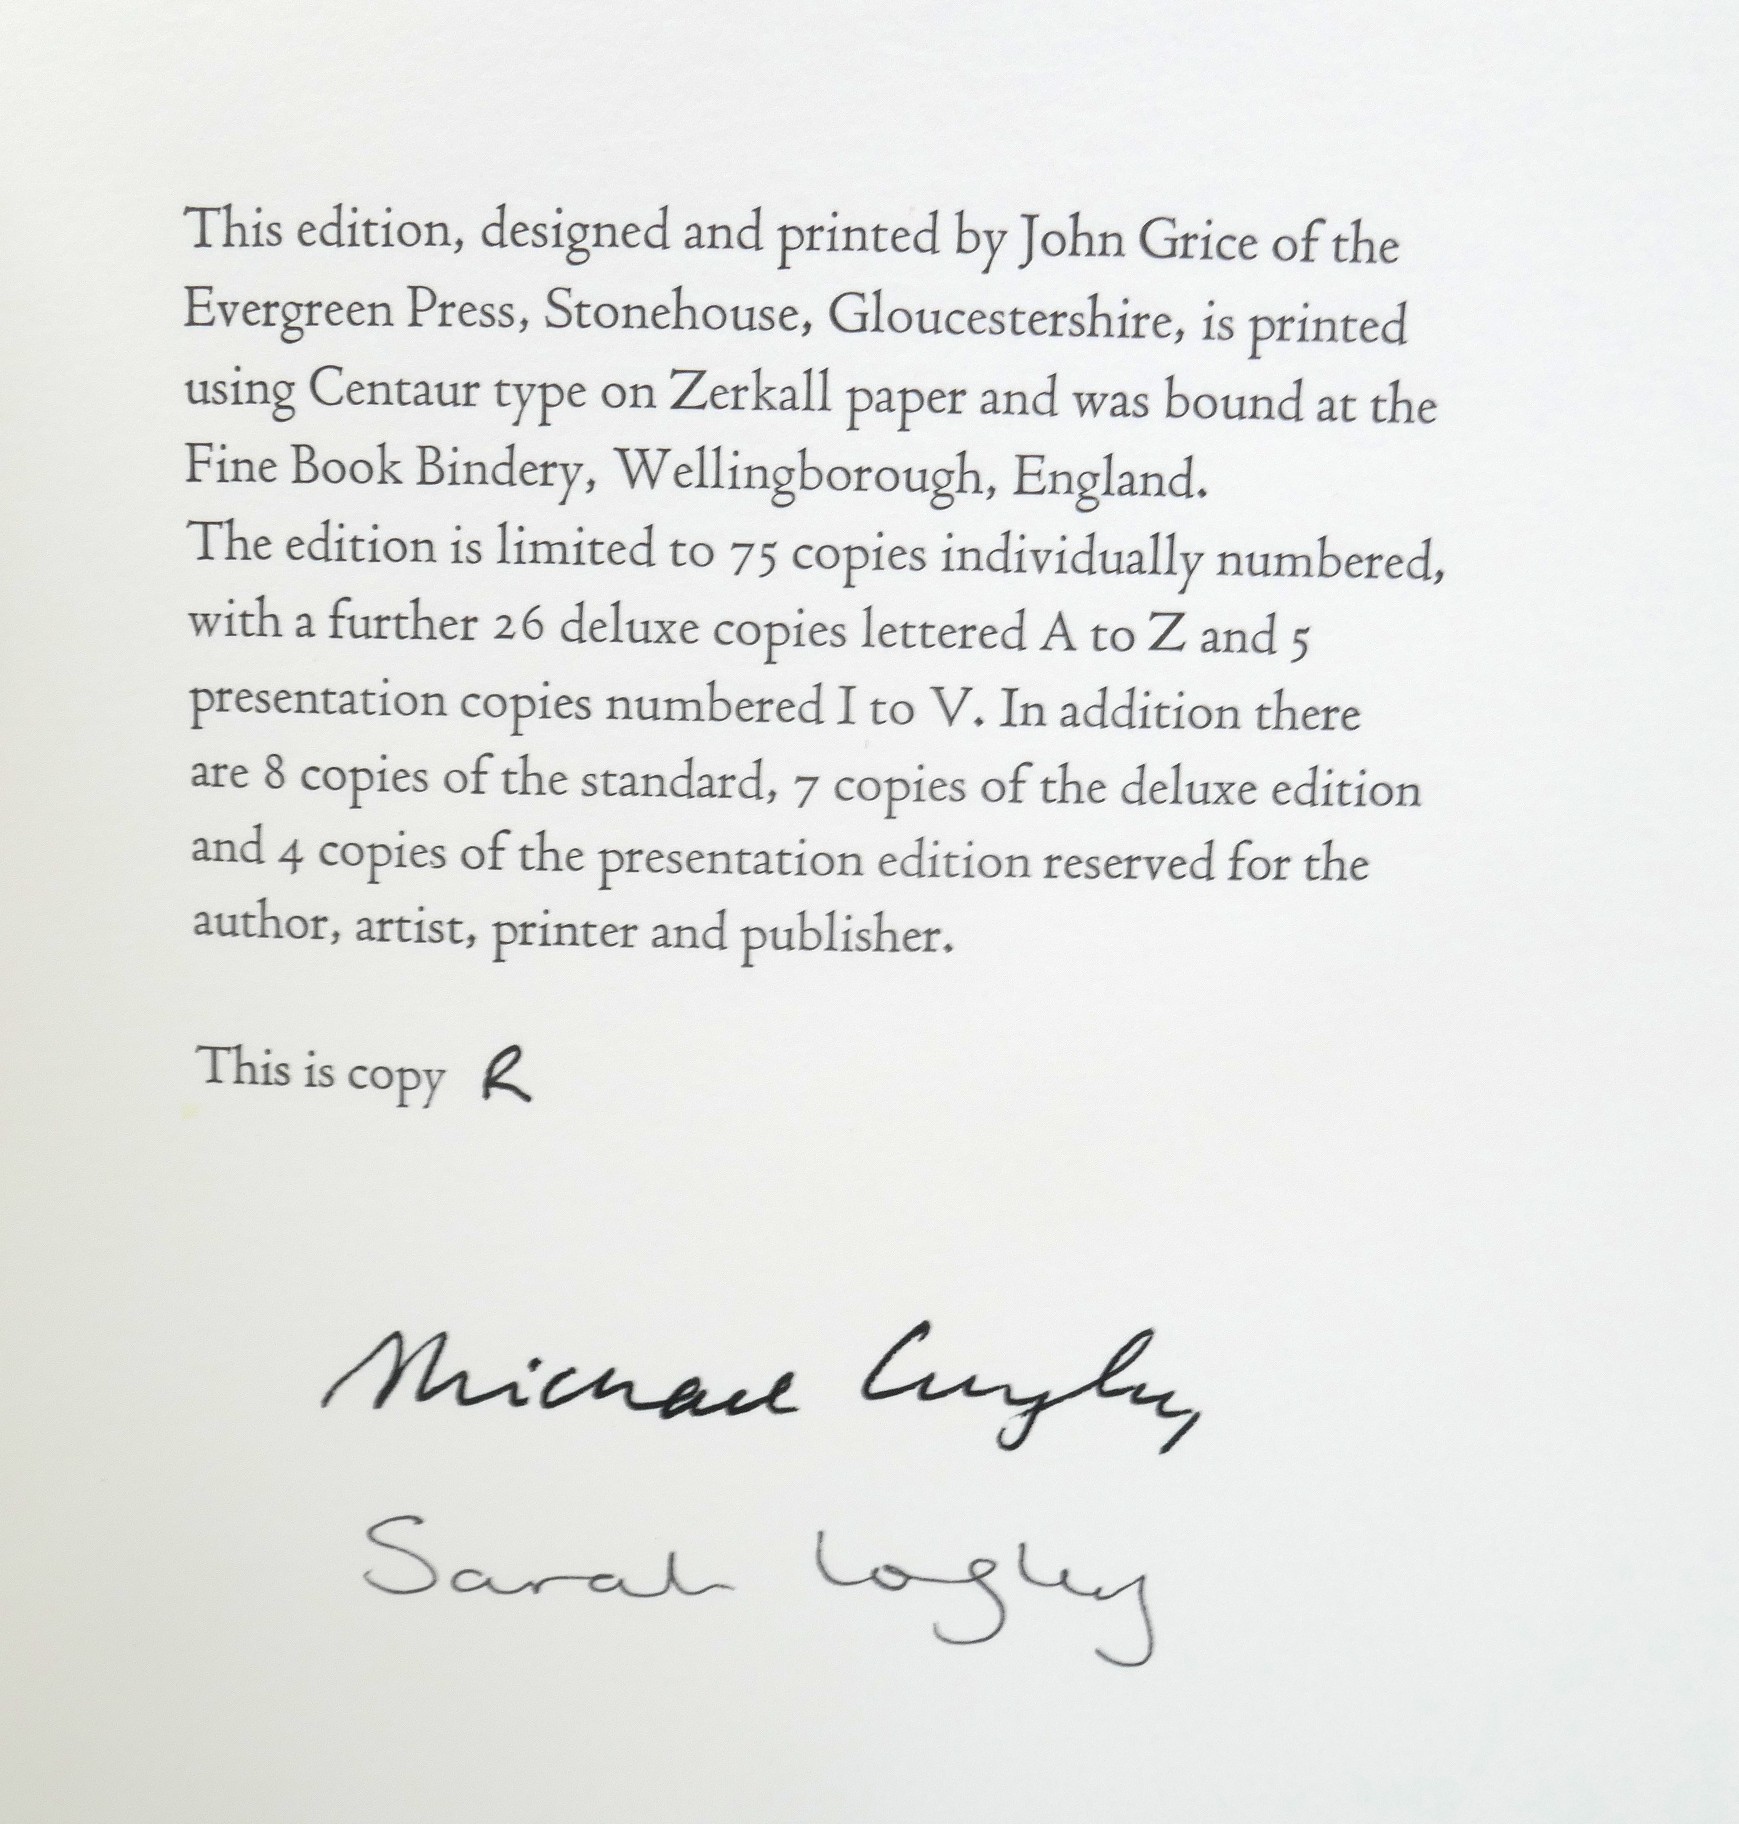 This edition, designed and printed by John Grice of the
Evergreen Press, Stonehouse, Gloucestershire, is printed
using Centaur type on Zerkall paper and was bound at the
Fine Book Bindery, Wellingborough, England.
The edition is limited to 75 copies individually numbered,
with a further 26 deluxe copies lettered A to Z and 5
presentation copies numbered I to V. In addition there
are 8 copies of the standard, 7 copies of the deluxe edition
and 4 copies of the presentation edition reserved for the
author, artist, printer and publisher.
This is copy R
Michael
Sarah